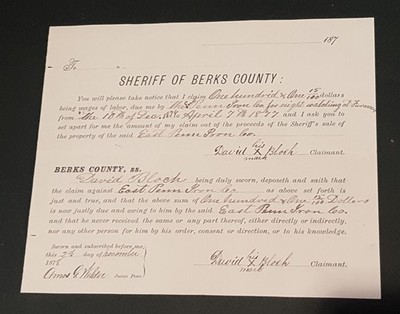 187
To
SHERIFF OF BERKS COUNTY:
You will please take notice that I claim One hundred & One 15/100 dollars
being wages of labor, due me by The E Penn Iron Co for night watching at Furnace
from the 18th of Dec, 1876 to April 7th 1877 and I ask you to
set apart for me the amount of my claim out of the proceeds of the Sheriff's sale
of the property of the said East Penn Iron Co.
his
David X Bloch Claimant.
mark
BERKS COUNTY, ss.
David Bloch being duly sworn, deposeth and saith that
the claim against East Penn Iron Co as above set forth is
just and true, and that the above sum of One hundred and One 15/100 Dollars
is now justly due and owing to him by the said East Penn Iron Co.
and that he never received the same or any part thereof, either directly or indirectly,
nor any other person for him by his order, consent or direction, or to his knowledge.
Sworn and subscribed before me,
this day of November
187
his
David X Bloch Claimant.
mark
Amos Justice Peace